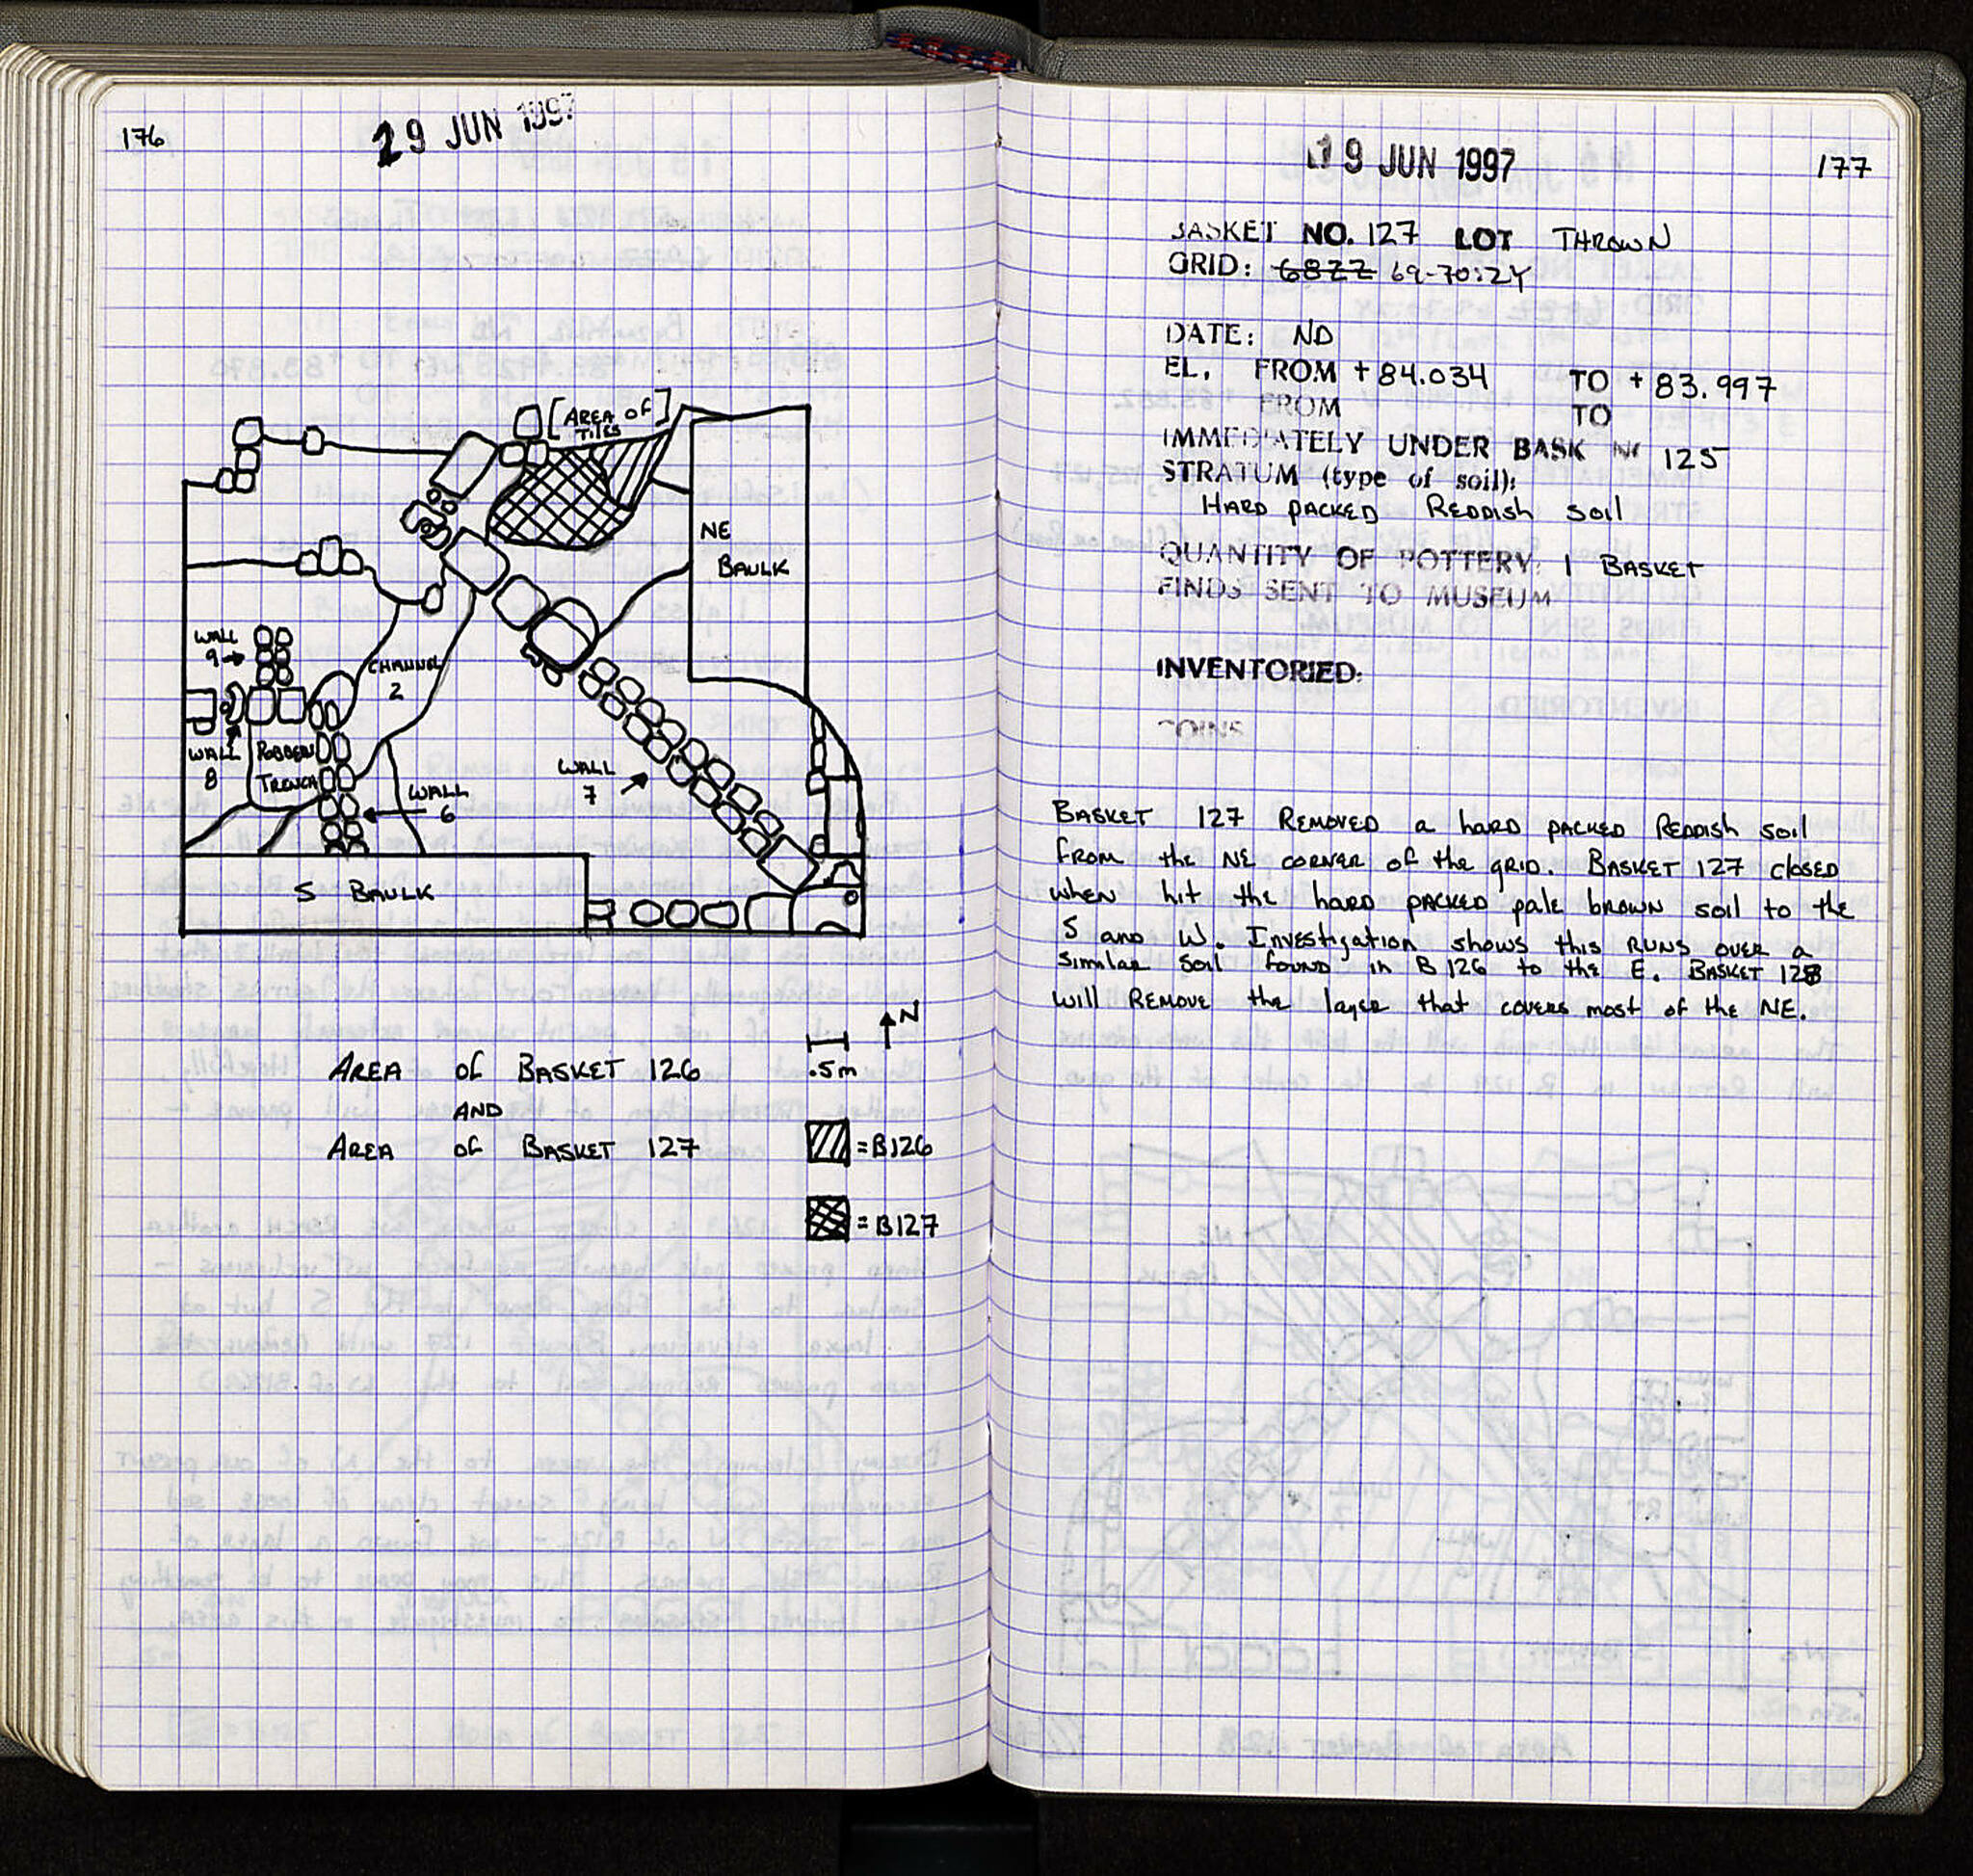 176
19 JUN 1997
[AREA OF TILES]
NE
BAULK
WALL
9
CHANNEL
2
WALL
8
ROBBERS
TRENCH
WALL
6
WALL
7
S BAULK
N
.5m
AREA OF BASKET 126
AND
AREA OF BASKET 127
=B126
=B127
19 JUN 1997
177
BASKET NO. 127 LOT THROWN
GRID: 68ZZ 69-70:ZY
DATE: ND
EL. FROM +84.034 TO +83.997
FROM TO
IMMEDIATELY UNDER BASK NO 125
STRATUM (type of soil):
HARD PACKED REDDISH SOIL
QUANTITY OF POTTERY: 1 BASKET
FINDS SENT TO MUSEUM
INVENTORIED:
COINS
BASKET 127 REMOVED a hard packed REDDISH soil
from the NE corner of the grid. BASKET 127 closed
when hit the hard packed pale brown soil to the
S and W. Investigation shows this RUNS over a
similar soil found in B 126 to the E. BASKET 128
will REMOVE the layer that covers most of the NE.